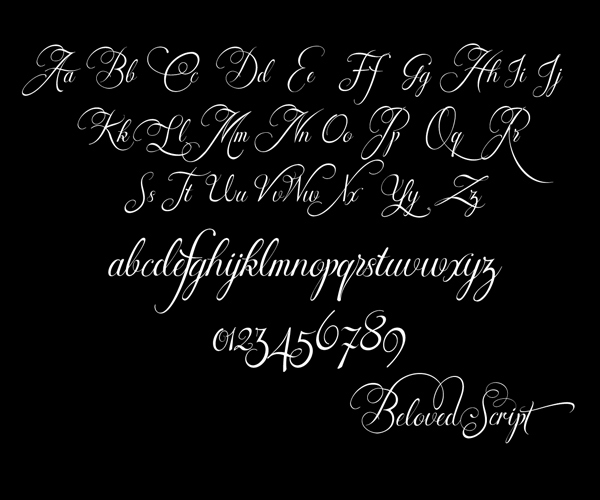 Aa Bb Cc Dd Ee Ff Gg Hh Ii Jj
Kk Ll Mm Nn Oo Pp Qq Rr
Ss Tt Uu Vv Ww Xx Yy Zz
abcdefghijklmnopqrstuvwxyz
0123456789
Beloved Script